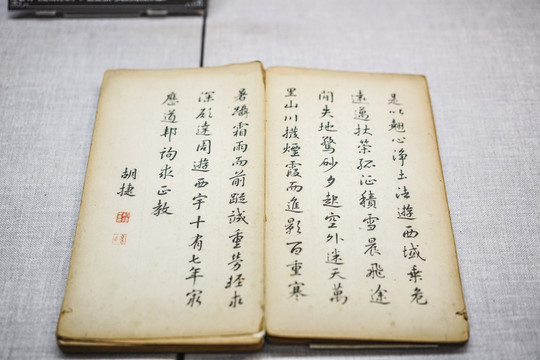 是以翹心淨土法遊西域乘危
遠邁扶策孤征積雪晨飛途
間失地驚砂夕起空外迷天萬
里山川撥煙霞而進影百重寒
暑躡霜雨而前蹤誠重勞輕求
深願達周遊西宇十有七年窮
歷道邦詢求正教
胡捷